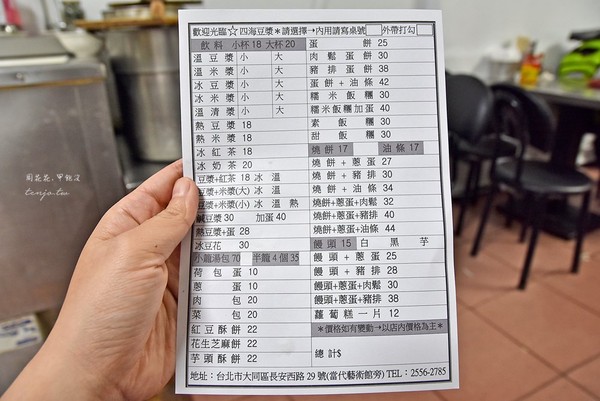 歡迎光臨☆四海豆漿＊請選擇→內用請寫桌號 外帶打勾
飲料 小杯18 大杯20
溫豆漿 小 大
溫米漿 小 大
冰豆漿 小 大
冰米漿 小 大
溫清漿 小 大
熱豆漿 18
熱米漿 18
冰紅茶 18
冰奶茶 20
豆漿+紅茶 18 冰 溫
豆漿+米漿(大) 冰 溫
豆漿+米漿(小) 冰 溫 熱
鹹豆漿 30 加蛋 40
熱豆漿+蛋 28
冰豆花 30
小籠湯包 70 半籠4個35
荷包蛋 10
蔥蛋 10
肉包 20
菜包 20
紅豆酥餅 22
花生芝麻餅 22
芋頭酥餅 22
蛋餅 25
肉鬆蛋餅 30
豬排蛋餅 38
蛋餅+油條 42
糯米飯糰 30
糯米飯糰加蛋 40
素飯糰 30
甜飯糰 30
燒餅 17 油條 17
燒餅+蔥蛋 27
燒餅+豬排 30
燒餅+油條 34
燒餅+蔥蛋+肉鬆 32
燒餅+蔥蛋+豬排 40
燒餅+蔥蛋+油條 44
饅頭 15 白 黑 芋
饅頭+蔥蛋 25
饅頭+豬排 28
饅頭+蔥蛋+肉鬆 30
饅頭+蔥蛋+豬排 38
蘿蔔糕一片 12
＊價格如有變動→以店內價格為主＊
總計$
地址：台北市大同區長安西路29號(當代藝術館旁) TEL：2556-2785
tenjo.tw